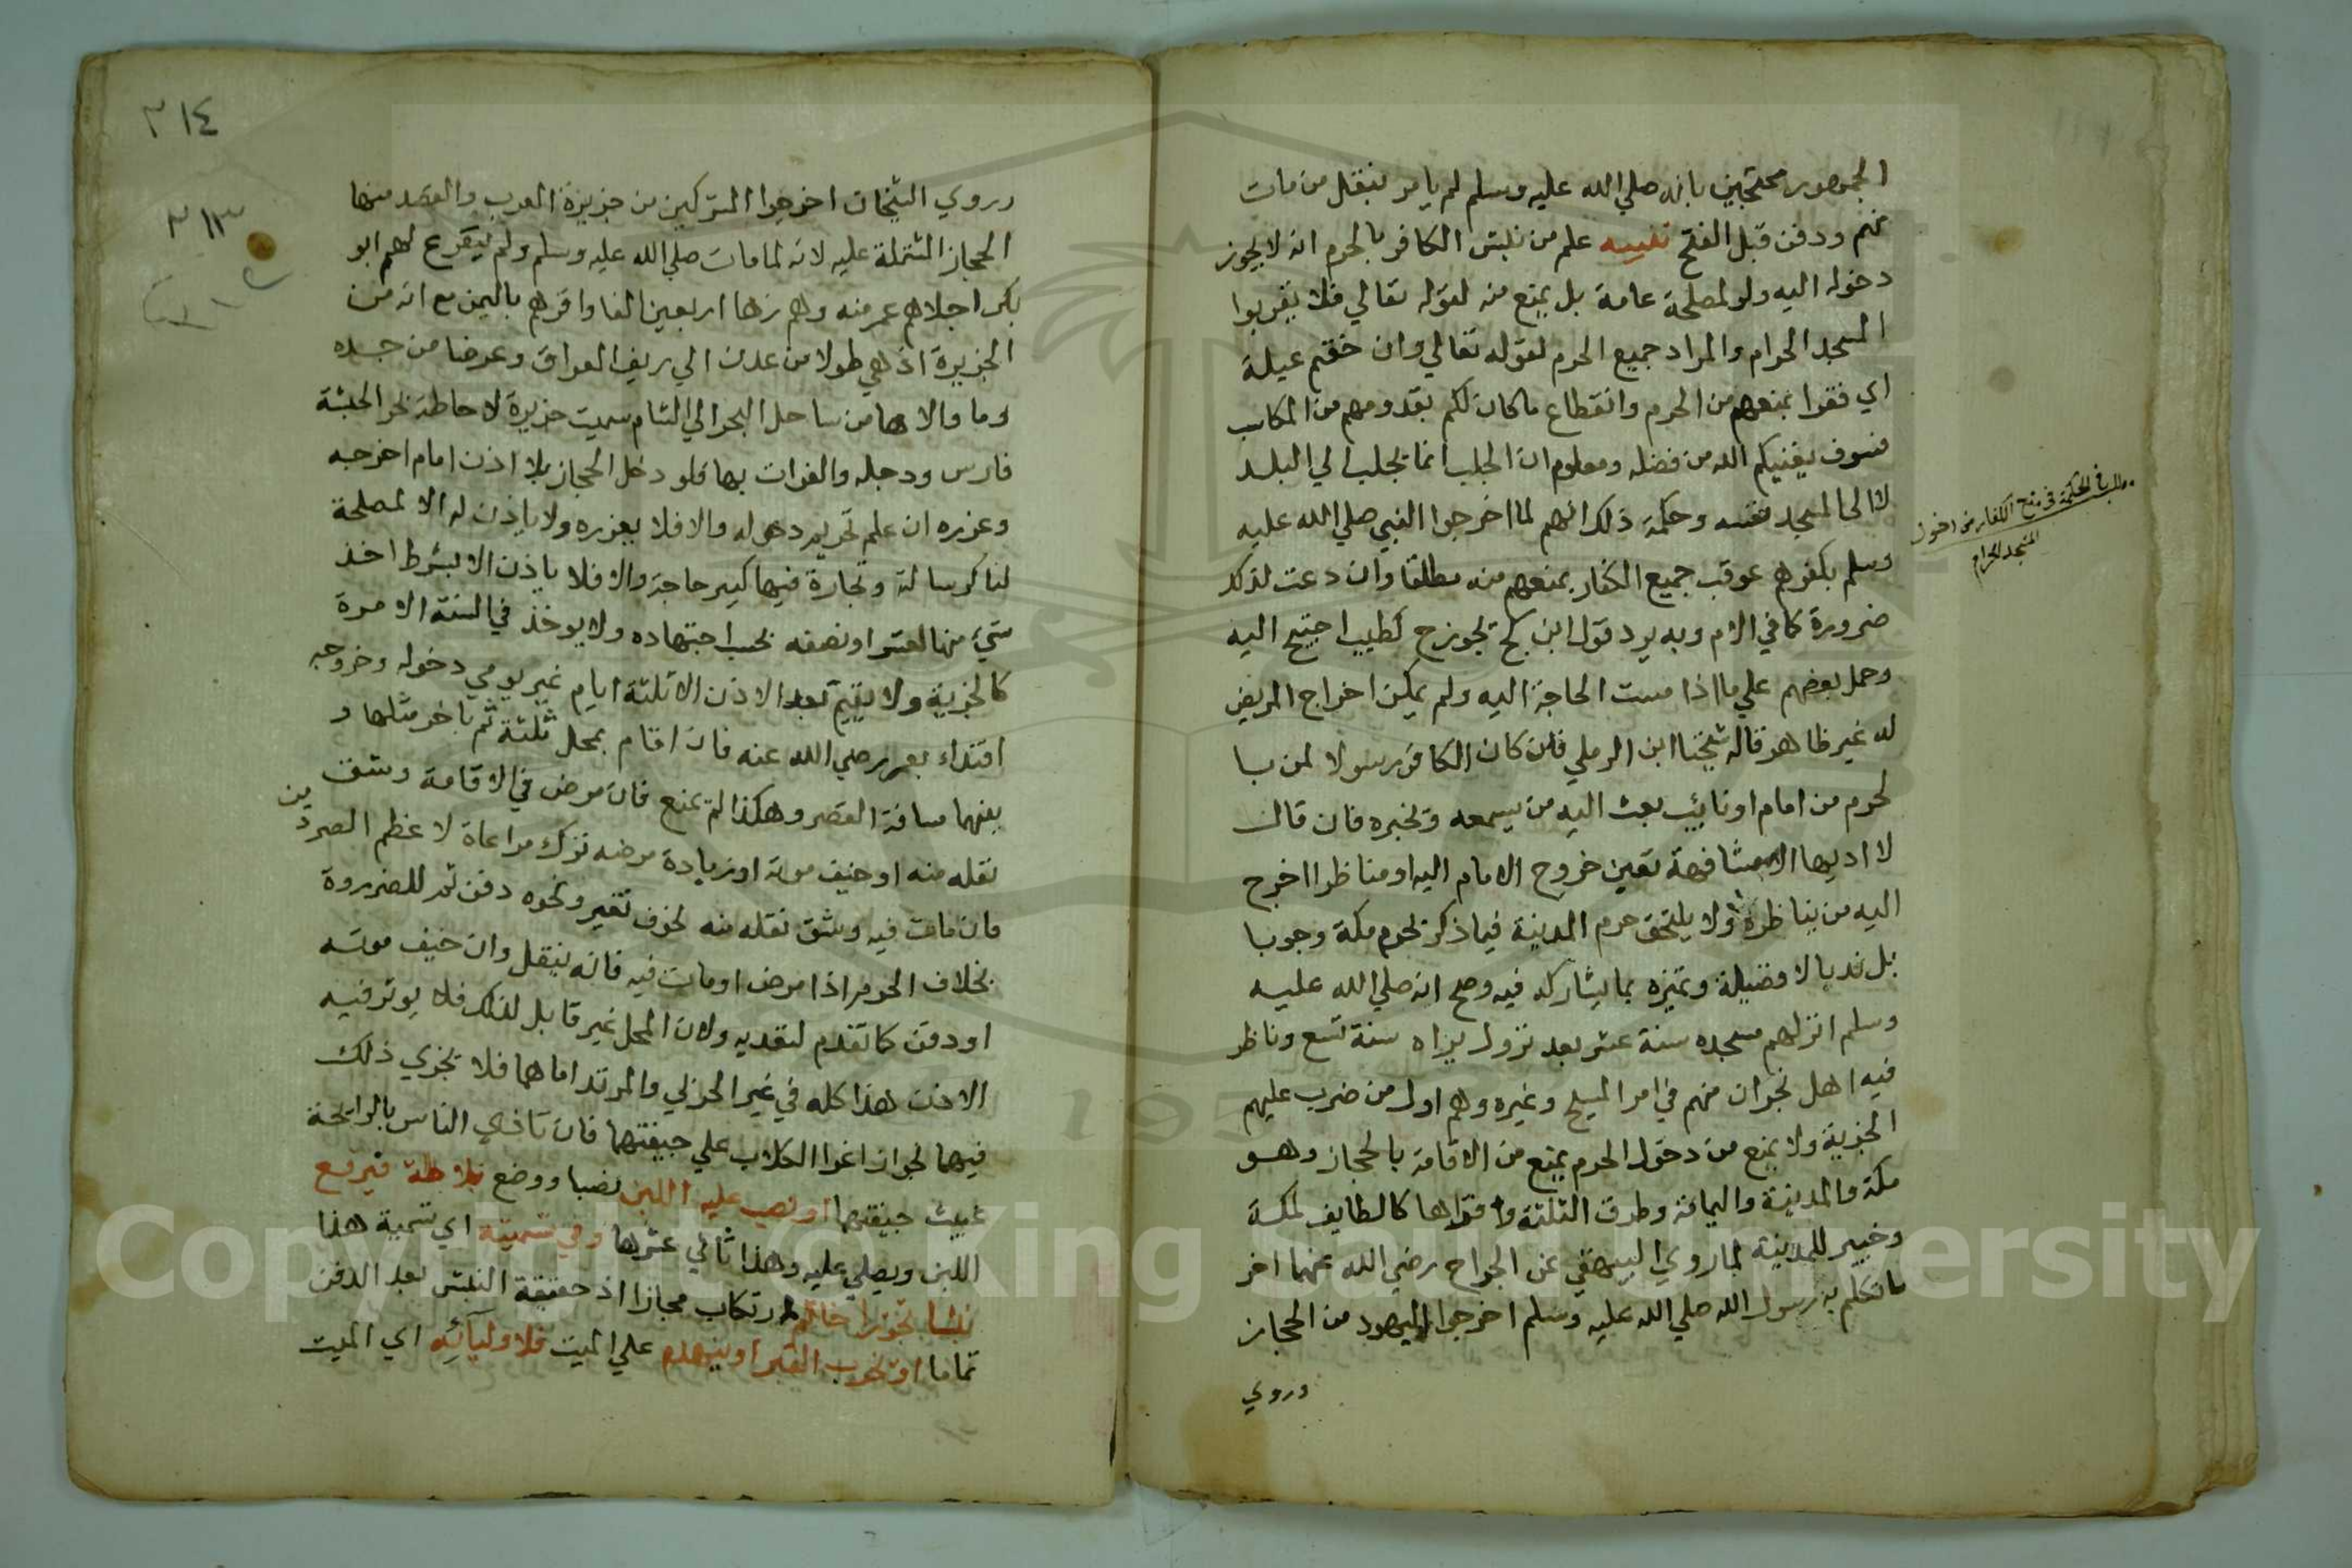 الجمهور محتجين بانه صلي الله عليه وسلم لم يامر بنقل من مات
منهم ودفن قبل الفتح تنبيه علم من نبش الكافر بالحرم انه لا يجوز
دخوله اليه ولو لمصلحة عامة بل يمنع منه لقوله تعالي فلا يقربوا
المسجد الحرام والمراد جميع الحرم لقوله تعالي وان خفتم عيلة
اي فقرا بمنعهم من الحرم وانقطاع ما كان لكم بقدومهم من المكاسب
فسوف يغنيكم الله من فضله ومعلوم ان الجلب انما يجلب الي البلد
لا الى المسجد نفسه وحكمة ذلك انهم لما اخرجوا النبي صلي الله عليه
وسلم بكفرهم عوقب جميع الكفار بمنعهم منه مطلقا وان دعت لذلك
ضرورة كما في الام وبه يرد قول ابن كج تجوزح لطبيب احتيج اليه
وحمل بعضهم علي ما اذا مست الحاجة اليه ولم يمكن اخراج المريض
له غير ظاهر قاله شيخنا ابن الرملي فان كان الكافر رسولا لمن با
لحرم من امام او نائب بعث اليه من يسمعه ويخبره فان قال
لا اديها الا مشافهة تعين خروج الامام اليه او مناظرا اخرج
اليه من يناظره ولا يلتحق حرم المدينة فيما ذكر بحرم مكة وجوبا
بل ندبا لا فضيلة وتميزه بما يشاركه فيه وصح انه صلي الله عليه
وسلم انزلهم مسجده سنة عشر بعد نزول براه سنة تسع وناظر
فيه اهل نجران منهم في امر المسيح وغيره وهم اول من ضرب عليهم
الجزية ولا يمنع من دخول الحرم يمنع من الاقامة بالحجاز وهو
مكة والمدينة واليمامة وطرق الثلثة وقراها كالطايف لمكة
وخيبر للمدينة لما روي البيهقي عن الجراح رضي الله عنهما اخر
ما تكلم به رسول الله صلي الله عليه وسلم اخرجوا اليهود من الحجاز
وروي
مطلب في الحكمة في منع الكفار من دخول
المسجد الحرام
٣١٤
٣١٣
وروي الشيخان اخرجوا المشركين من جزيرة العرب والقصد منها
الحجاز المشتملة عليه لانه لما مات صلي الله عليه وسلم ولم يتفرع لهم ابو
بكر اجلاهم عمر منه وهم زها اربعين الفا واقرهم باليمن مع انه من
الجزيرة اذ هي طولا من عدن الي ريف العراق وعرضا من جده
وما والاها من ساحل البحر الي الشام سميت جزيرة لاحاطة بحر الحبشة
فارس ودجله والفرات بها فلو دخل الحجاز بلا اذن امام اخرجه
وعزره ان علم تحريم دخوله والا فلا يعزره ولا ياذن له الا لمصلحة
لنا كرسالة وتجارة فيها كبير حاجة والا فلا ياذن الا بشرط اخذ
شيء منها العشر او نصفه بحسب اجتهاده ولا يوخذ في السنة الا مرة
كالجزية ولا يقيم بعد الاذن الا ثلثة ايام غير يومي دخوله وخروجه
اقتداء بعمر رضي الله عنه فان اقام بمحل ثلثة ثم باخر مثلها و
بينهما مسافة القصر وهكذا لم يمنع فان مرض في الاقامة وشق
نقله منه او خيف موته او زيادة مرضه ترك مراعاة لاعظم الضررين
فان مات فيه وشق نقله منه لخوف تغير ونحوه دفن ثم للضرورة
بخلاف الحرم اذا مرض او مات فيه فانه ينقل وان خيف موته
او دفن كما تقدم لتعديه ولان المحل غير قابل لذلك فلا يوثر فيه
الاذن هذا كله في غير الحربي والمرتد اما هما فلا يجري ذلك
فيهما لجواز اغرا الكلاب علي جيفتهما فان تاذي الناس بالرايحة
غيبت جيفتهما او نصب عليه اللبن نصبا ووضع بلاطة فيرفع
اللبن ويصلي عليه وهذا ثاني عشرها وفي تسميته اي تسمية هذا
نبشا تجوزا ارتكاب مجازا اذ حقيقة النبش بعد الدفن
تماما او تخرب القبر او ينهدم علي الميت فلاوليآئه اي الميت
Copyright © King Saud University